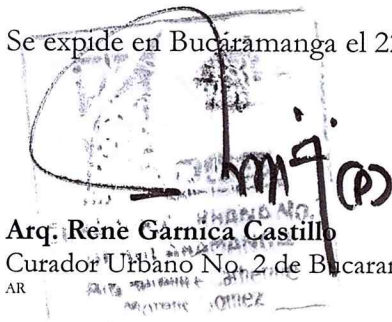 Se expide en Bucaramanga el 22
(P)
Arq. Renè Garnica Castillo
Curador Urbano No. 2 de Bucaram
AR